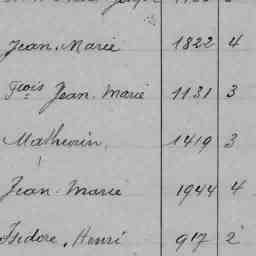 Jean. Marie 1822 4
Fçois Jean. Marie 1131 3
Mathurin, 1419 3
Jean Marie 1944 4
Isidore, Henri 917 2